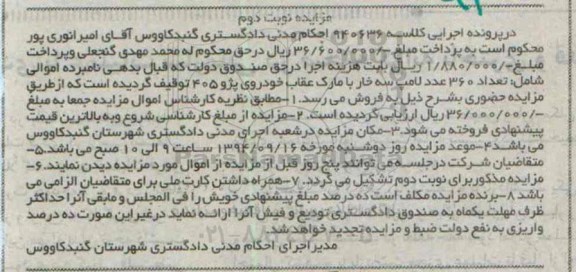 مزایده نوبت دوم
درپرونده اجرایی کلاسه ۹۴۰۶۳۶ احکام مدنی دادگستری گنبدکاووس آقای امیرانوری پور
محکوم است به پرداخت مبلغ -/۳۶/۶۰۰/۰۰۰ ریال درحق محکوم له محمد مهدی گنجعلی وپرداخت
مبلغ -/۱/۸۸۰/۰۰۰ ریال بابت هزینه اجرا درحق صندوق دولت که قبال بدهی نامبرده اموالی
شامل: تعداد ۳۶۰ عدد لامپ سه خار با مارک عقاب خودروی پژو ۴۰۵ توقیف گردیده است که ازطریق
مزایده حضوری بشرح ذیل به فروش می رسد. ۱-مطابق نظریه کارشناس اموال مزایده جمعا به مبلغ
-/۳۶/۰۰۰/۰۰۰ ریال ارزیابی گردیده است. ۲-مزایده از مبلغ کارشناسی شروع وبه بالاترین قیمت
پیشنهادی فروخته می شود.۳-مکان مزایده درشعبه اجرای مدنی دادگستری شهرستان گنبدکاووس
می باشد۴-موعد مزایده روز دوشنبه مورخه ۱۳۹۴/۰۹/۱۶ ساعت ۹ الی ۱۰ صبح می باشد.۵-
متقاضیان شرکت درجلسه می توانند پنج روز قبل از مزایده از اموال مورد مزایده دیدن نمایند.۶-
مزایده مذکوربرای نوبت دوم تشکیل می گردد. ۷-همراه داشتن کارت ملی برای متقاضیان الزامی می
باشد ۸-برنده مزایده مکلف است ده درصد مبلغ پیشنهادی خویش را فی المجلس و مابقی آنرا حداکثر
ظرف مهلت یکماه به صندوق دادگستری تودیع و فیش آنرا ارائه نماید درغیراین صورت ده درصد
واریزی به نفع دولت ضبط و مزایده تجدید خواهدشد.
مدیراجرای احکام مدنی دادگستری شهرستان گنبدکاووس